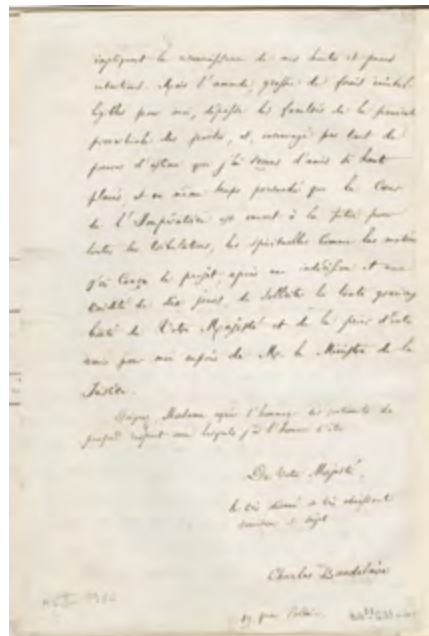 impliquant la reconnaissance de mes hautes et pures
intentions. Mais l'amende, grossie de frais inintel-
ligibles pour moi, dépasse les facultés de la pauvreté
proverbiale des poètes, et, encouragé par tant de
preuves d'estime que j'ai reçues d'amis si haut
placés, et en même temps persuadé que le Cœur
de l'Impératrice est ouvert à la pitié pour
toutes les tribulations, les spirituelles comme les matérielles
j'ai conçu le projet, après une indécision et une
timidité de dix jours, de solliciter la toute gracieuse
bonté de Votre Majesté et de la prier d'inter-
venir pour moi auprès de M. le Ministre de la
Justice.
Daignez, Madame, agréer l'hommage des sentiments de
profond respect avec lesquels j'ai l'honneur d'être
De Votre Majesté,
le très dévoué et très obéissant
serviteur et sujet
Charles Baudelaire
19, quai Voltaire.